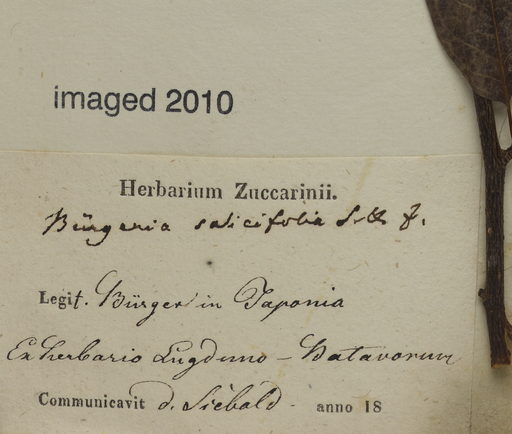 imaged 2010
Herbarium Zuccarinii.
Bürgeria salicifolia S. & Z.
Legit. Bürger in Japonia
Ex herbario Lugduno-Batavorum
Communicavit d. Siebold. anno 18